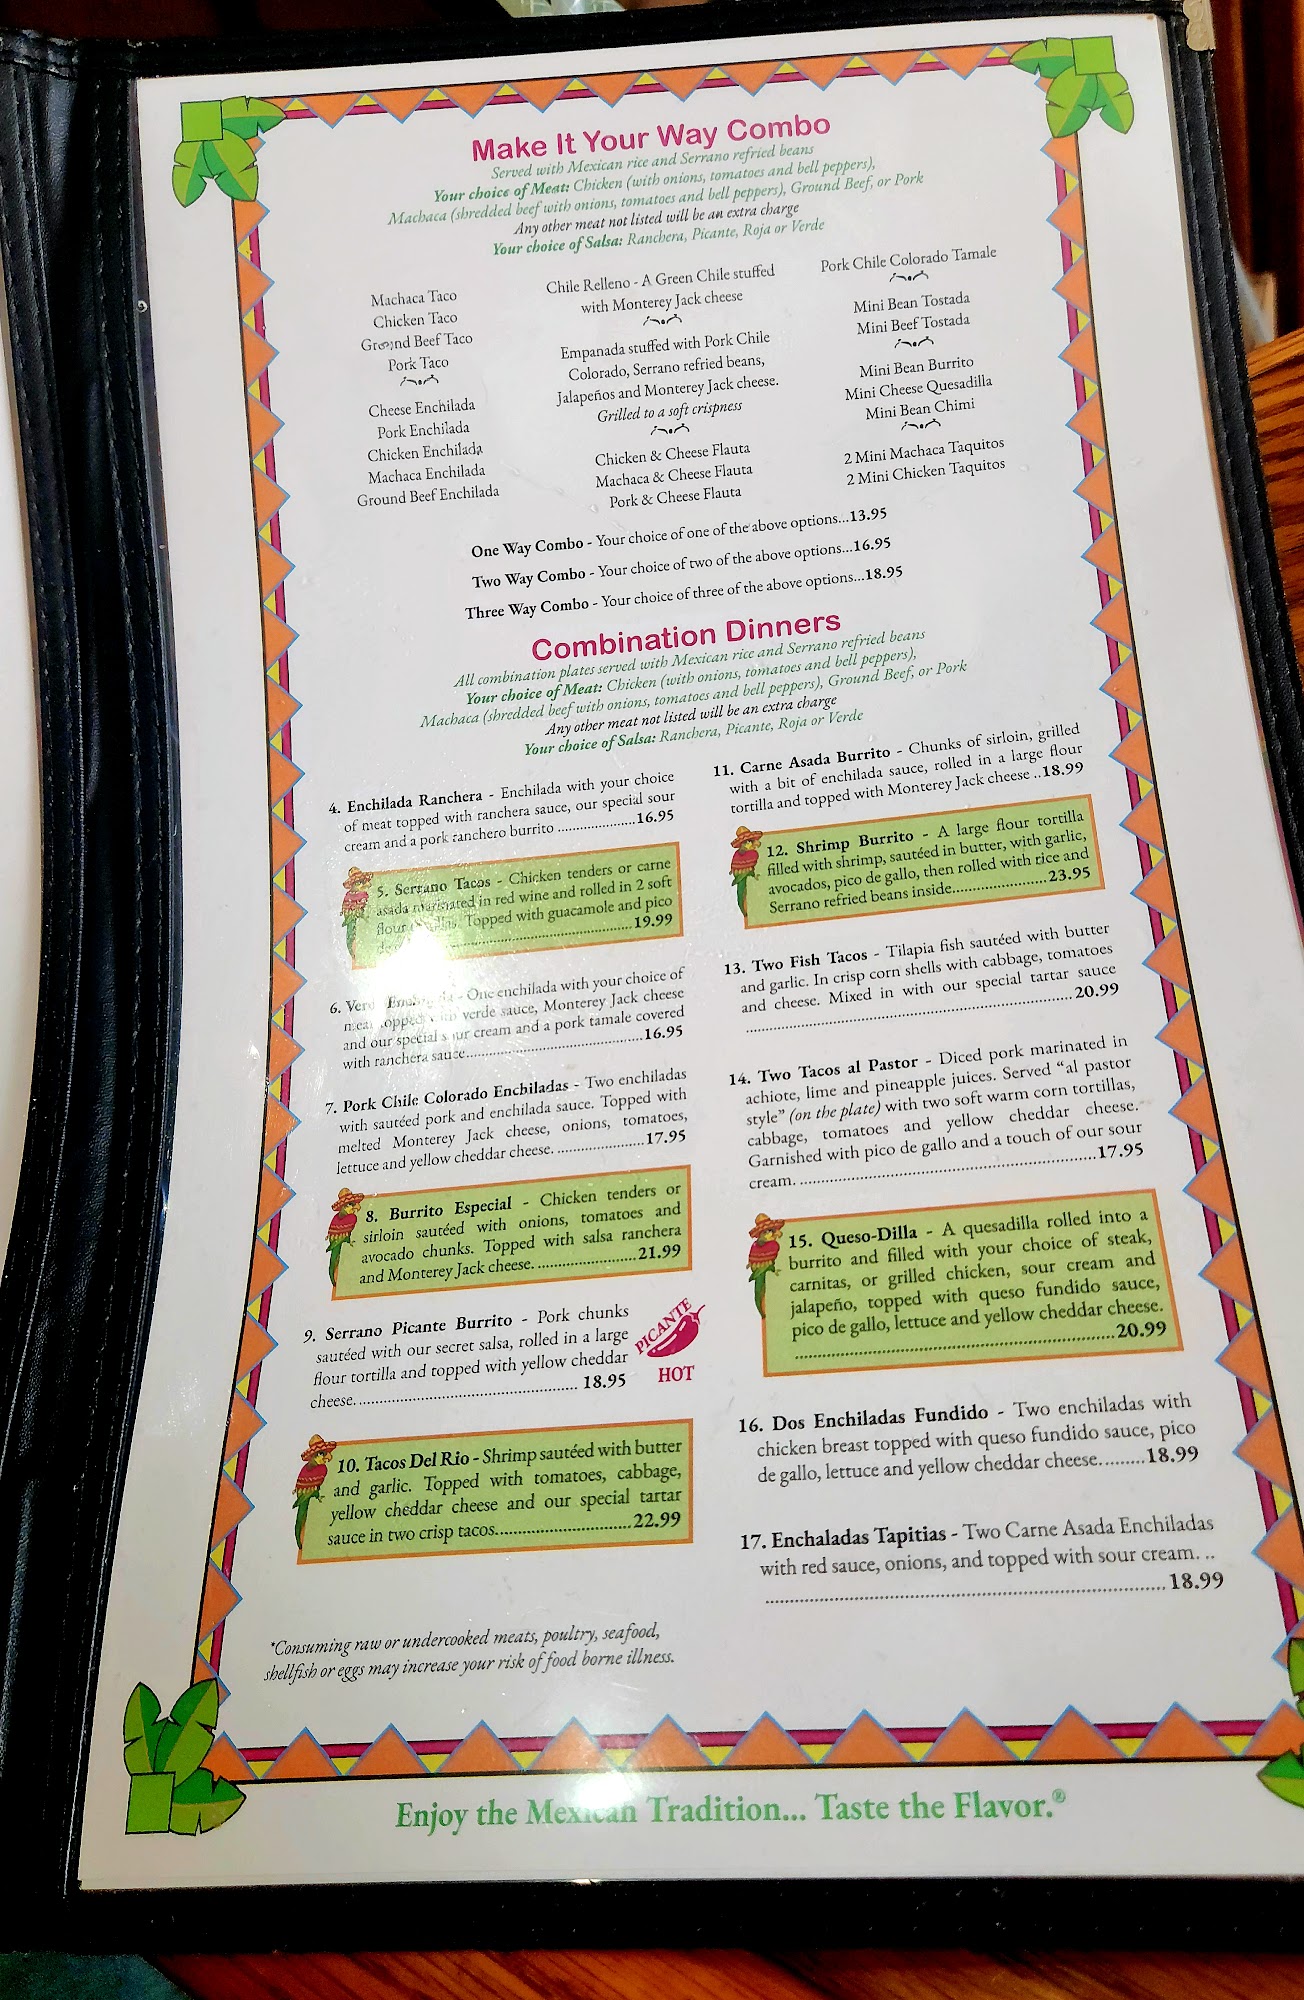 Make It Your Way Combo
Served with Mexican rice and Serrano refried beans
Your choice of Meat: Chicken (with onions, tomatoes and bell peppers),
Machaca (shredded beef with onions, tomatoes and bell peppers), Ground Beef, or Pork
Any other meat not listed will be an extra charge
Your choice of Salsa: Ranchera, Picante, Roja or Verde
Machaca Taco
Chicken Taco
Ground Beef Taco
Pork Taco
Cheese Enchilada
Pork Enchilada
Chicken Enchilada
Machaca Enchilada
Ground Beef Enchilada
Chile Relleno - A Green Chile stuffed
with Monterey Jack cheese
Empanada stuffed with Pork Chile
Colorado, Serrano refried beans,
Jalapeños and Monterey Jack cheese.
Grilled to a soft crispness
Chicken & Cheese Flauta
Machaca & Cheese Flauta
Pork & Cheese Flauta
Pork Chile Colorado Tamale
Mini Bean Tostada
Mini Beef Tostada
Mini Bean Burrito
Mini Cheese Quesadilla
Mini Bean Chimi
2 Mini Machaca Taquitos
2 Mini Chicken Taquitos
One Way Combo - Your choice of one of the above options...13.95
Two Way Combo - Your choice of two of the above options...16.95
Three Way Combo - Your choice of three of the above options...18.95
Combination Dinners
All combination plates served with Mexican rice and Serrano refried beans
Your choice of Meat: Chicken (with onions, tomatoes and bell peppers),
Machaca (shredded beef with onions, tomatoes and bell peppers), Ground Beef, or Pork
Any other meat not listed will be an extra charge
Your choice of Salsa: Ranchera, Picante, Roja or Verde
4. Enchilada Ranchera - Enchilada with your choice
of meat topped with ranchera sauce, our special sour
cream and a pork ranchero burrito ....................16.95
5. Serrano Tacos - Chicken tenders or carne
asada marinated in red wine and rolled in 2 soft
flour Topped with guacamole and pico
..........................................19.99
6. Enchilada - One enchilada with your choice of
meat topped with verde sauce, Monterey Jack cheese
and our special sour cream and a pork tamale covered
with ranchera sauce..........................................16.95
7. Pork Chile Colorado Enchiladas - Two enchiladas
with sautéed pork and enchilada sauce. Topped with
melted Monterey Jack cheese, onions, tomatoes,
lettuce and yellow cheddar cheese. .....................17.95
8. Burrito Especial - Chicken tenders or
sirloin sautéed with onions, tomatoes and
avocado chunks. Topped with salsa ranchera
and Monterey Jack cheese. ........................21.99
9. Serrano Picante Burrito - Pork chunks
sautéed with our secret salsa, rolled in a large
flour tortilla and topped with yellow cheddar
cheese. ................................................ 18.95
PICANTE
HOT
10. Tacos Del Rio - Shrimp sautéed with butter
and garlic. Topped with tomatoes, cabbage,
yellow cheddar cheese and our special tartar
sauce in two crisp tacos.............................22.99
11. Carne Asada Burrito - Chunks of sirloin, grilled
with a bit of enchilada sauce, rolled in a large flour
tortilla and topped with Monterey Jack cheese ..18.99
12. Shrimp Burrito - A large flour tortilla
filled with shrimp, sautéed in butter, with garlic,
avocados, pico de gallo, then rolled with rice and
Serrano refried beans inside.......................23.95
13. Two Fish Tacos - Tilapia fish sautéed with butter
and garlic. In crisp corn shells with cabbage, tomatoes
and cheese. Mixed in with our special tartar sauce
.....................................................................20.99
14. Two Tacos al Pastor - Diced pork marinated in
achiote, lime and pineapple juices. Served “al pastor
style” (on the plate) with two soft warm corn tortillas,
cabbage, tomatoes and yellow cheddar cheese.
Garnished with pico de gallo and a touch of our sour
cream. ...............................................................17.95
15. Queso-Dilla - A quesadilla rolled into a
burrito and filled with your choice of steak,
carnitas, or grilled chicken, sour cream and
jalapeño, topped with queso fundido sauce,
pico de gallo, lettuce and yellow cheddar cheese.
................................................................20.99
16. Dos Enchiladas Fundido - Two enchiladas with
chicken breast topped with queso fundido sauce, pico
de gallo, lettuce and yellow cheddar cheese.........18.99
17. Enchaladas Tapitias - Two Carne Asada Enchiladas
with red sauce, onions, and topped with sour cream. ..
................................................................................ 18.99
*Consuming raw or undercooked meats, poultry, seafood,
shellfish or eggs may increase your risk of food borne illness.
Enjoy the Mexican Tradition... Taste the Flavor.®